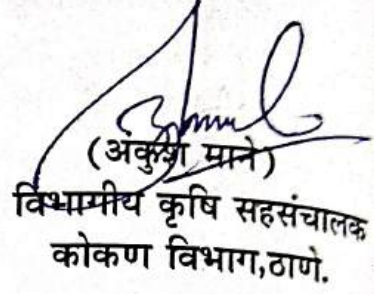 (अंकुश माने)
विभागीय कृषि सहसंचालक
कोकण विभाग,ठाणे.